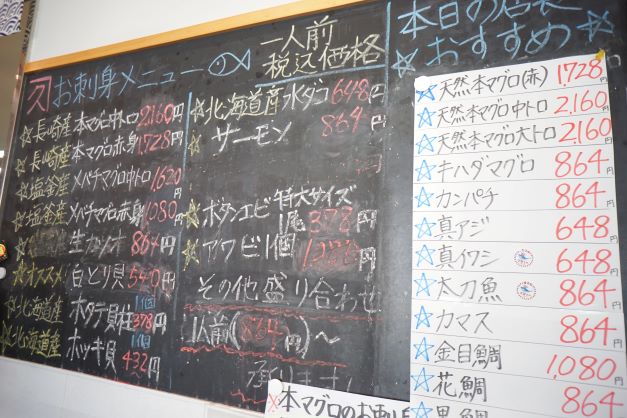 お刺身メニュー
一人前
税込価格
☆長崎産 本マグロ中トロ 2,160円
☆長崎産 本マグロ赤身 1,728円
☆塩釜産 メバチマグロ中トロ 1,620円
☆塩釜産 メバチマグロ赤身 1,080円
生カツオ 864円
☆オススメ 白とり貝 540円
☆北海道産 ホタテ貝柱 1個 378円
☆北海道産 ホッキ貝 1個 432円
☆北海道産 水ダコ 648円
☆サーモン 864円
☆ボタンエビ 特大サイズ
1尾 378円
☆アワビ 1個
円
その他盛り合わせ
1人前(864円)〜
承ります
本日の店長
☆おすすめ☆
☆天然本マグロ(赤) 1,728
☆天然本マグロ中トロ 2,160
☆天然本マグロ大トロ 2,160
☆キハダマグロ 864
☆カンパチ 864
☆真アジ 648
☆真イワシ 648
☆太刀魚 864
☆カマス 864
☆金目鯛 1,080
☆花鯛 864
☆黒鯛 864
本マグロのお刺身